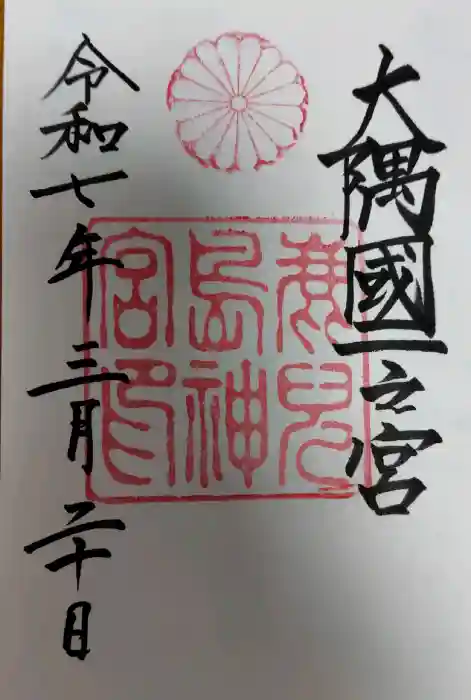 大隅國一之宮
鹿兒島神宮印
令和七年三月二十日